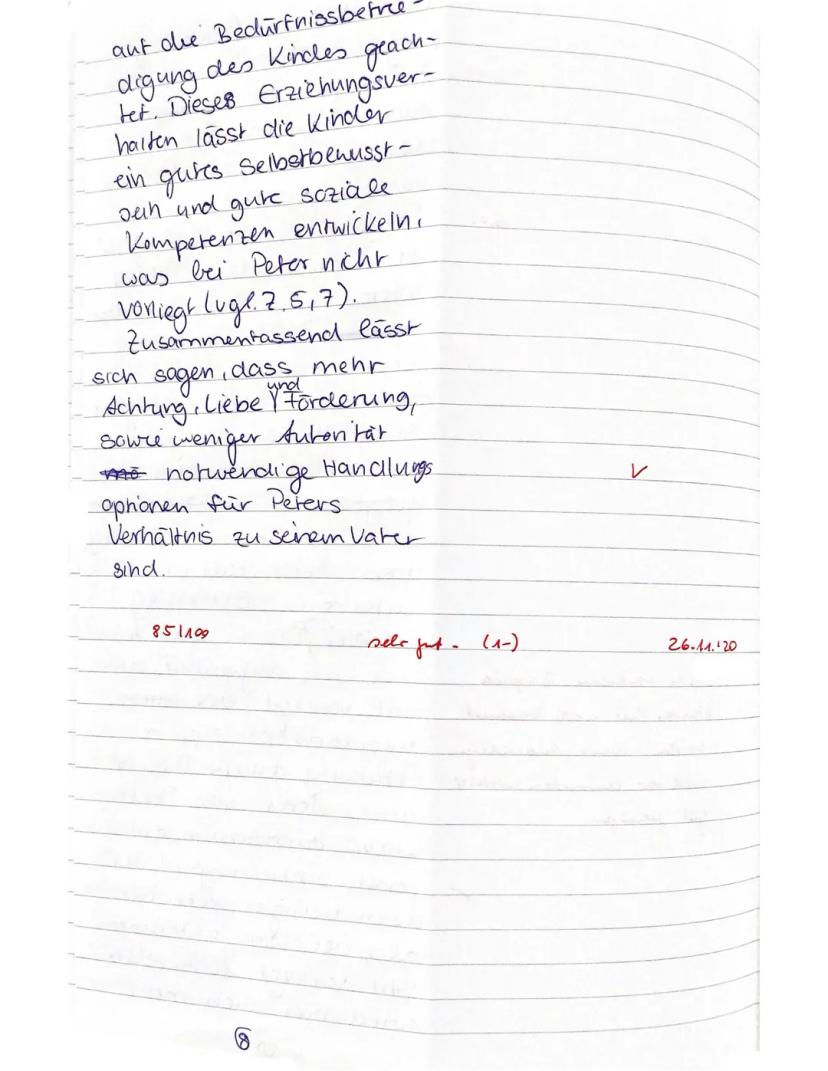 auf die Bedürfnissbefrie-
digung des Kindes geach-
tet. Dieses Erziehungsver-
halten lässt die Kinder
ein gutes Selberbewusst-
sein und gute soziale
Kompetenzen entwickeln,
was bei Peter nicht
vorliegt (vgl. Z. 5, 7).
Zusammenfassend lässt
sich sagen, dass mehr
Achtung, Liebe und Förderung,
sowie weniger Autorität
notwendige Handlungs
optionen für Peters
Verhältnis zu seinem Vater
sind.
85/100 sehr gut - (1-) 26.11.'20
8